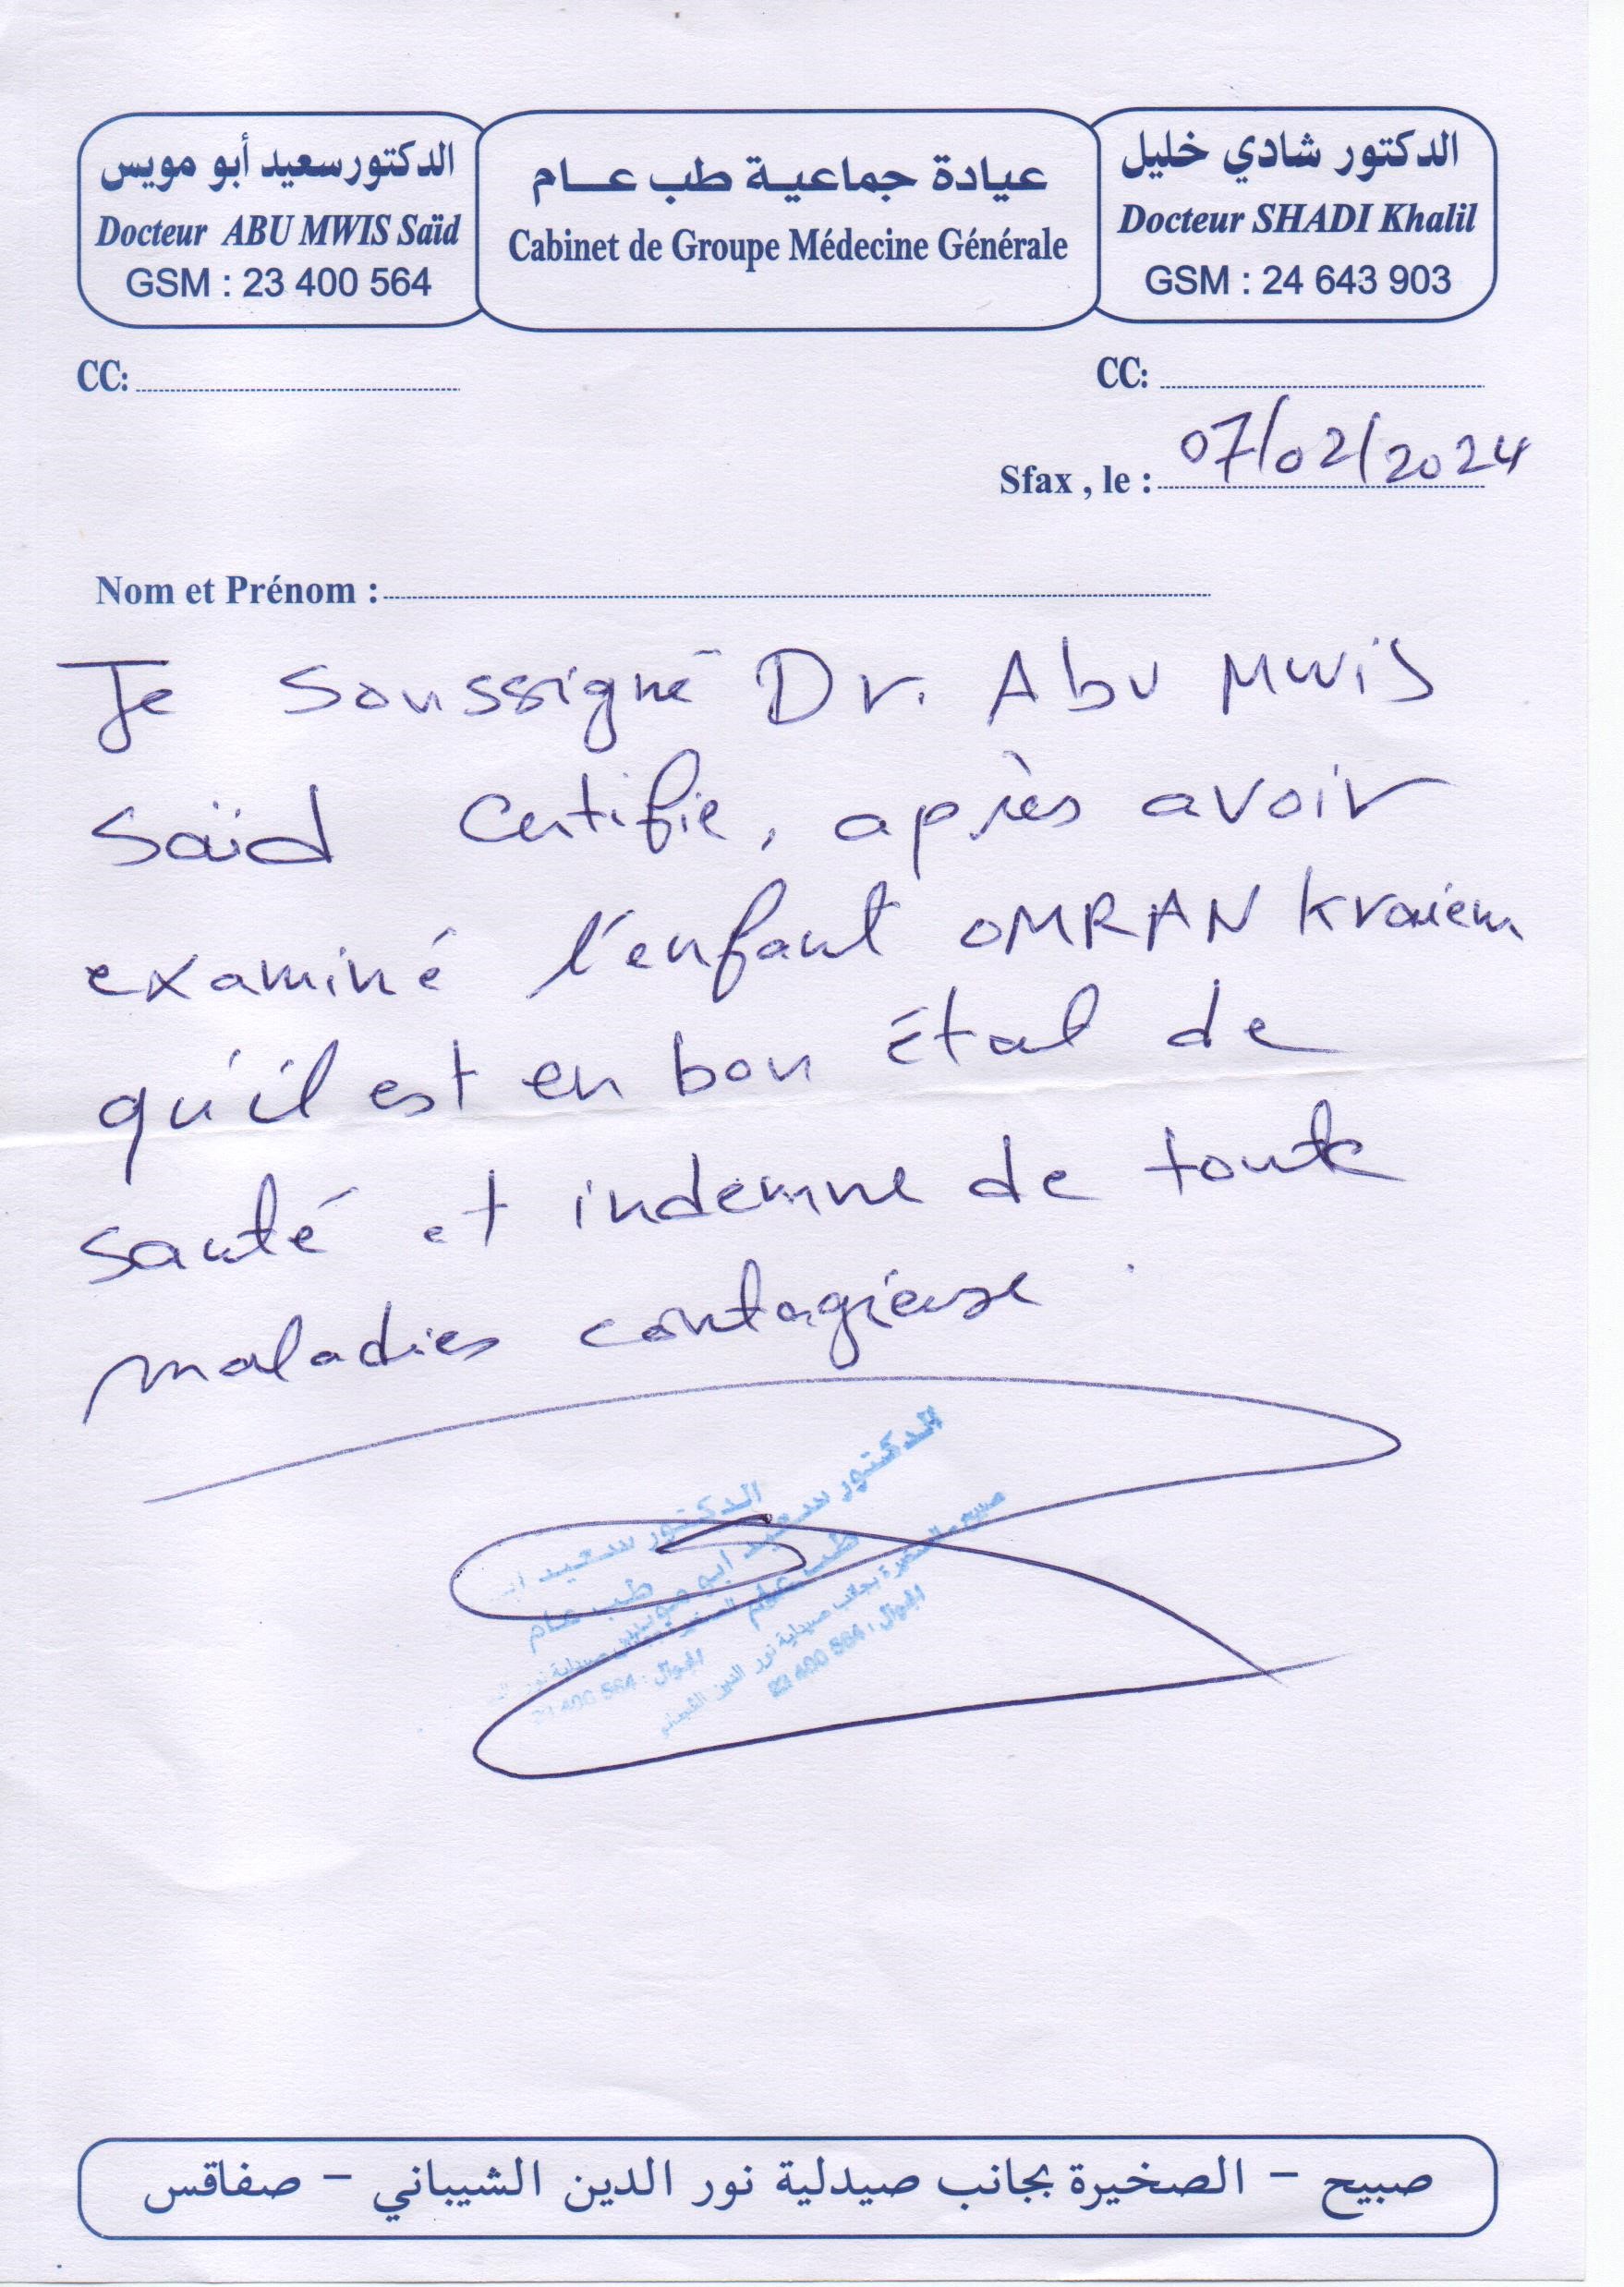 الدكتور سعيد أبو مويس
Docteur ABU MWIS Saïd
GSM : 23 400 564
عيادة جماعية طب عام
Cabinet de Groupe Médecine Générale
الدكتور شادي خليل
Docteur SHADI Khalil
GSM : 24 643 903
CC:
CC:
Sfax , le : 07/02/2024
Nom et Prénom :
Je soussigné Dr. Abu Mwis
Saïd certifie, après avoir
examiné l'enfant OMRAN Kraiem
qu'il est en bon état de
santé et indemne de toute
maladies contagieuse.
الدكتور سعيد
طب عام
الجوال : 23 400 564
الدكتور سعيد ابو مويس
طب عام
صبيح - الصخيرة بجانب صيدلية نور الدين الشيباني
الجوال : 23 400 564
صبيح - الصخيرة بجانب صيدلية نور الدين الشيباني - صفاقس